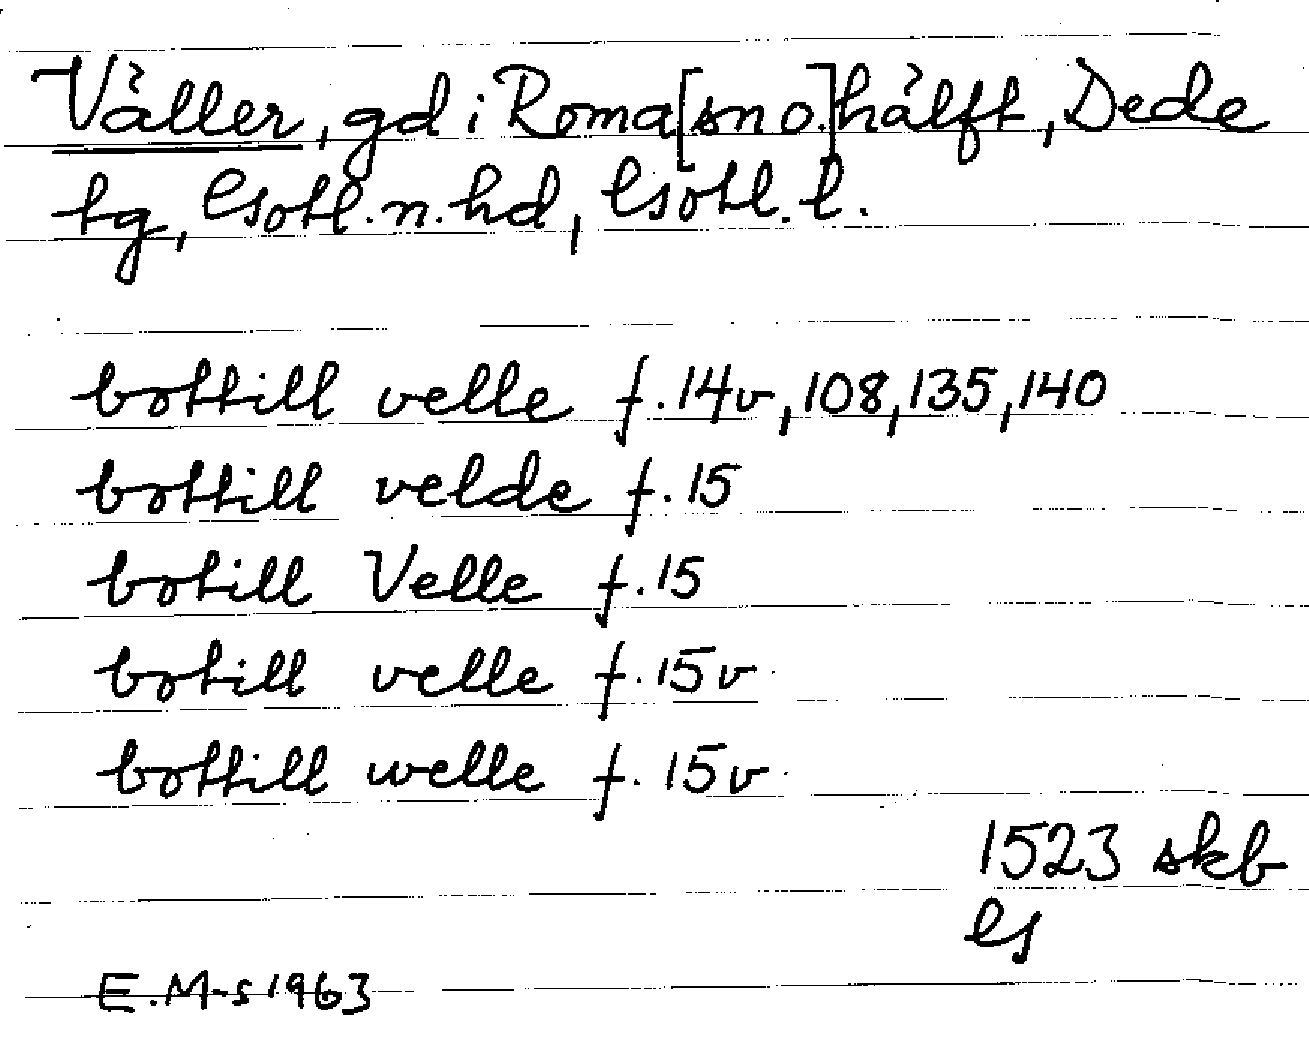 Väller, gd i Roma[sn o.]hälft, Dede
tg, Gotl. n. hd, Gotl. l.
bottill velle f. 14v, 108, 135, 140
bottill velde f. 15
botill Velle f. 15
botill velle f. 15v
bottill welle f. 15v
1523 skb
G
E. M-s 1963